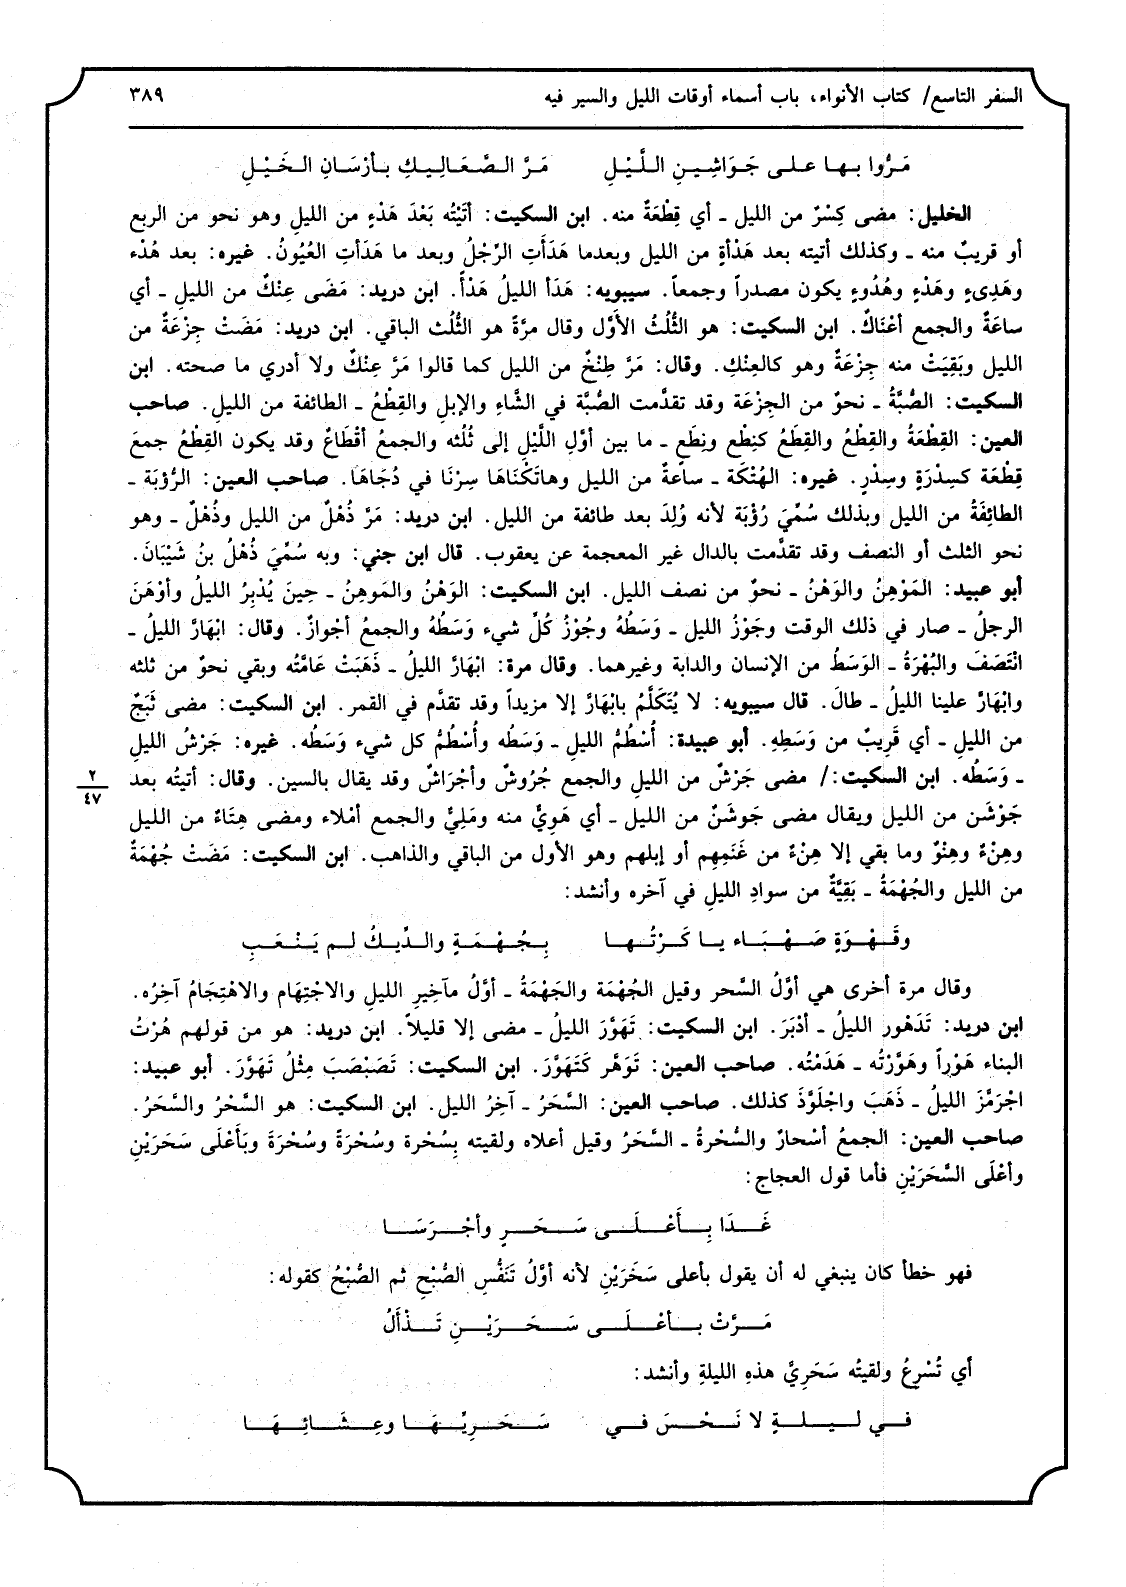 السفر التاسع/ كتاب الأنواء، باب أسماء أوقات الليل والسير فيه ٣٨٩
مَرُّوا بها على جَوَاشِينِ اللَّيْلِ مَرَّ الصَّعَالِيكِ بأَرْسَانِ الخَيْلِ
الخليل: مضى كِسْرٌ من الليل ـ أي قِطْعَةٌ منه. ابن السكيت: أتَيْتُه بَعْدَ هَدْءٍ من الليلِ وهو نحو من الربع
أو قريبٌ منه ـ وكذلك أتيته بعد هَدْأةٍ من الليل وبعدما هَدَأَتِ الرِّجْلُ وبعد ما هَدَأتِ العُيُونُ. غيره: بعد هُدْء
وهَدِىءٍ وهَدْءٍ وهُدُوءٍ يكون مصدراً وجمعاً. سيبويه: هَدَأ الليلُ هَدْأً. ابن دريد: مَضَى عِنْكٌ من الليلِ ـ أي
ساعَةٌ والجمع أعْنَاكٌ. ابن السكيت: هو الثُّلُثُ الأَوَّل وقال مرَّةً هو الثُّلُث الباقي. ابن دريد: مَضَتْ جِزْعَةٌ من
الليل وبَقِيَتْ منه جِزْعَةٌ وهو كالعِنْكِ. وقال: مَرَّ طِنْخٌ من الليل كما قالوا مَرَّ عِنْكٌ ولا أدري ما صحته. ابن
السكيت: الصُّبَّةُ ـ نحوٌ من الجِزْعَة وقد تقدَّمت الصُّبَّة في الشَّاءِ والإبلِ والقِطْعُ ـ الطائفة من الليلِ. صاحب
العين: القِطْعَةُ والقِطْعُ والقِطَعُ كنِطْعِ ونِطَعِ ـ ما بين أوَّلِ اللَّيْلِ إلى ثُلُثه والجمعُ أقْطَاعٌ وقد يكون القِطْعُ جمعَ
قِطْعَة كسِدْرَةٍ وسِدْرٍ. غيره: الهُتْكَة ـ ساعةٌ من الليل وهاتَكْنَاهَا سِرْنَا في دُجَاهَا. صاحب العين: الرُّؤْبَة ـ
الطائِفَةُ من الليل وبذلك سُمِّيَ رُؤْبَة لأنه وُلِدَ بعد طائفة من الليل. ابن دريد: مَرَّ ذُهْلٌ من الليل وذُهْلٌ ـ وهو
نحو الثلث أو النصف وقد تقدَّمت بالدال غير المعجمة عن يعقوب. قال ابن جني: وبه سُمِّيَ ذُهْلُ بنُ شَيْبَانَ.
أبو عبيد: المَوْهِنُ والوَهْنُ ـ نحوٌ من نصف الليل. ابن السكيت: الوَهْنُ والمَوهِنُ ـ حِينَ يُدْبِرُ الليلُ وأوْهَنَ
الرجلُ ـ صار في ذلك الوقت وجَوْزُ الليل ـ وَسَطُهُ وجُوْزُ كُلِّ شيء وَسَطُهُ والجمعُ أجْوازٌ. وقال: ابْهَارَّ الليلُ ـ
انْتَصَفَ والبُهْرَةُ ـ الوَسَطُ من الإنسان والدابة وغيرهما. وقال مرة: ابْهَارَّ الليلُ ـ ذَهَبَتْ عَامَّتُه وبقي نحوٌ من ثلثه
وابْهَارَّ علينا الليلُ ـ طالَ. قال سيبويه: لا يُتَكَلَّمُ بابْهَارَّ إلا مزيداً وقد تقدَّم في القمر. ابن السكيت: مضى ثَبَجٌ
من الليلِ ـ أي قَرِيبٌ من وَسَطِهِ. أبو عبيدة: أُسْطُمُّ الليلِ ـ وَسَطُه وأُسْطُمُّ كل شيء وَسَطُه. غيره: جَرْسُ الليلِ
ـ وَسَطُه. ابن السكيت:/ مضى جَرْسٌ من الليلِ والجمع جُرُوشٌ وأجْرَاشٌ وقد يقال بالسين. وقال: أتيتُه بعد
٢
٤٧
جَوْشَن من الليل ويقال مضى جَوشَنٌ من الليل ـ أي هَوِيٌّ منه ومَلِيٌّ والجمع أمْلاء ومضى هِتَاءٌ من الليل
وهِنْءٌ وهِنْوٌ وما بقي إلا هِنْءٌ من غَنَمِهِم أو إبلهم وهو الأول من الباقي والذاهب. ابن السكيت: مَضَتْ جُهْمَةٌ
من الليل والجُهْمَةُ ـ بَقِيَّةٌ من سوادِ الليلِ في آخره وأنشد:
وقَهْوَةٍ صَهْبَاء يا كَرْتُها بِجُهْمَةٍ والدِّيكُ لم يَنْعَبِ
وقال مرة أخرى هي أوَّلُ السَّحر وقيل الجُهْمَة والجَهْمَةُ ـ أوَّلُ مآخِيرِ الليلِ والاجْتِهَام والاهْتِجَامُ آخِرُه.
ابن دريد: تَدَهْور الليلُ ـ أدْبَرَ. ابن السكيت: تَهَوَّرَ الليلُ ـ مضى إلا قليلاً. ابن دريد: هو من قولهم هُرْتُ
البناء هَوْراً وهَوَّرْتُه ـ هَدَمْتُه. صاحب العين: تَوَهَّر كَتَهَوَّرَ. ابن السكيت: تَصَبْصَبَ مِثْلُ تَهَوَّرَ. أبو عبيد:
اجْرَمَّزَ الليلُ ـ ذَهَبَ واجْلَوَّذَ كذلك. صاحب العين: السَّحَرُ ـ آخِرُ الليل. ابن السكيت: هو السَّحْرُ والسَّحَرُ.
صاحب العين: الجمعُ أسْحارٌ والسُّحْرةُ ـ السَّحَرُ وقيل أعلاه ولقيته بِسُحْرة وسُحْرَةً وسُحْرَةَ وبَأَعْلَى سَحَرَيْنِ
وأعْلَى السَّحَرَيْنِ فأما قول العجاج:
غَدَا بِأَعْلَى سَحَرٍ وأجْرَسَا
فهو خطأ كان ينبغي له أن يقول بأعلى سَحَرَيْنِ لأنه أوَّلُ تَنَفُّسِ الصُّبْحِ ثم الصُّبْحُ كقوله:
مَرَّتْ بأعْلَى سَحَرَيْنِ تَذْأَلُ
أي تُسْرِعُ ولقيتُه سَحَرِيَّ هذهِ الليلةِ وأنشد:
في ليلةٍ لا نَحْسَ في سَحَرِيِّهَا وعِشَائِهَا